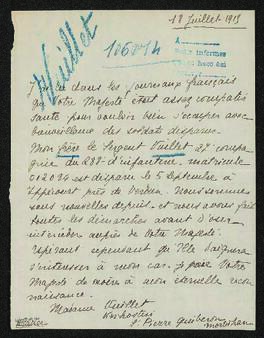 18 Juillet 1915
Vuillet
106014
J'ai lu dans les journaux français
que Votre Majesté était assez compatis
sante pour vouloir bien s'occuper avec
bienveillance des soldats disparus.
Mon frère le Sergent Vuillet 27 compa
gnie du 288 d'infanterie, matricule
012034 est disparu le 5 Septembre à
près de Verdun. Nous sommes
sans nouvelles depuis et nous avons fait
toutes les démarches avant d'oser
intercéder auprès de Votre Majesté.
Espérant cependant qu'Elle daignera
s'intéresser à mon cas, je prie Votre
Majesté de croire à mon éternelle recon
naissance.
Madame Vuillet
St Pierre Quiberon
Morbihan